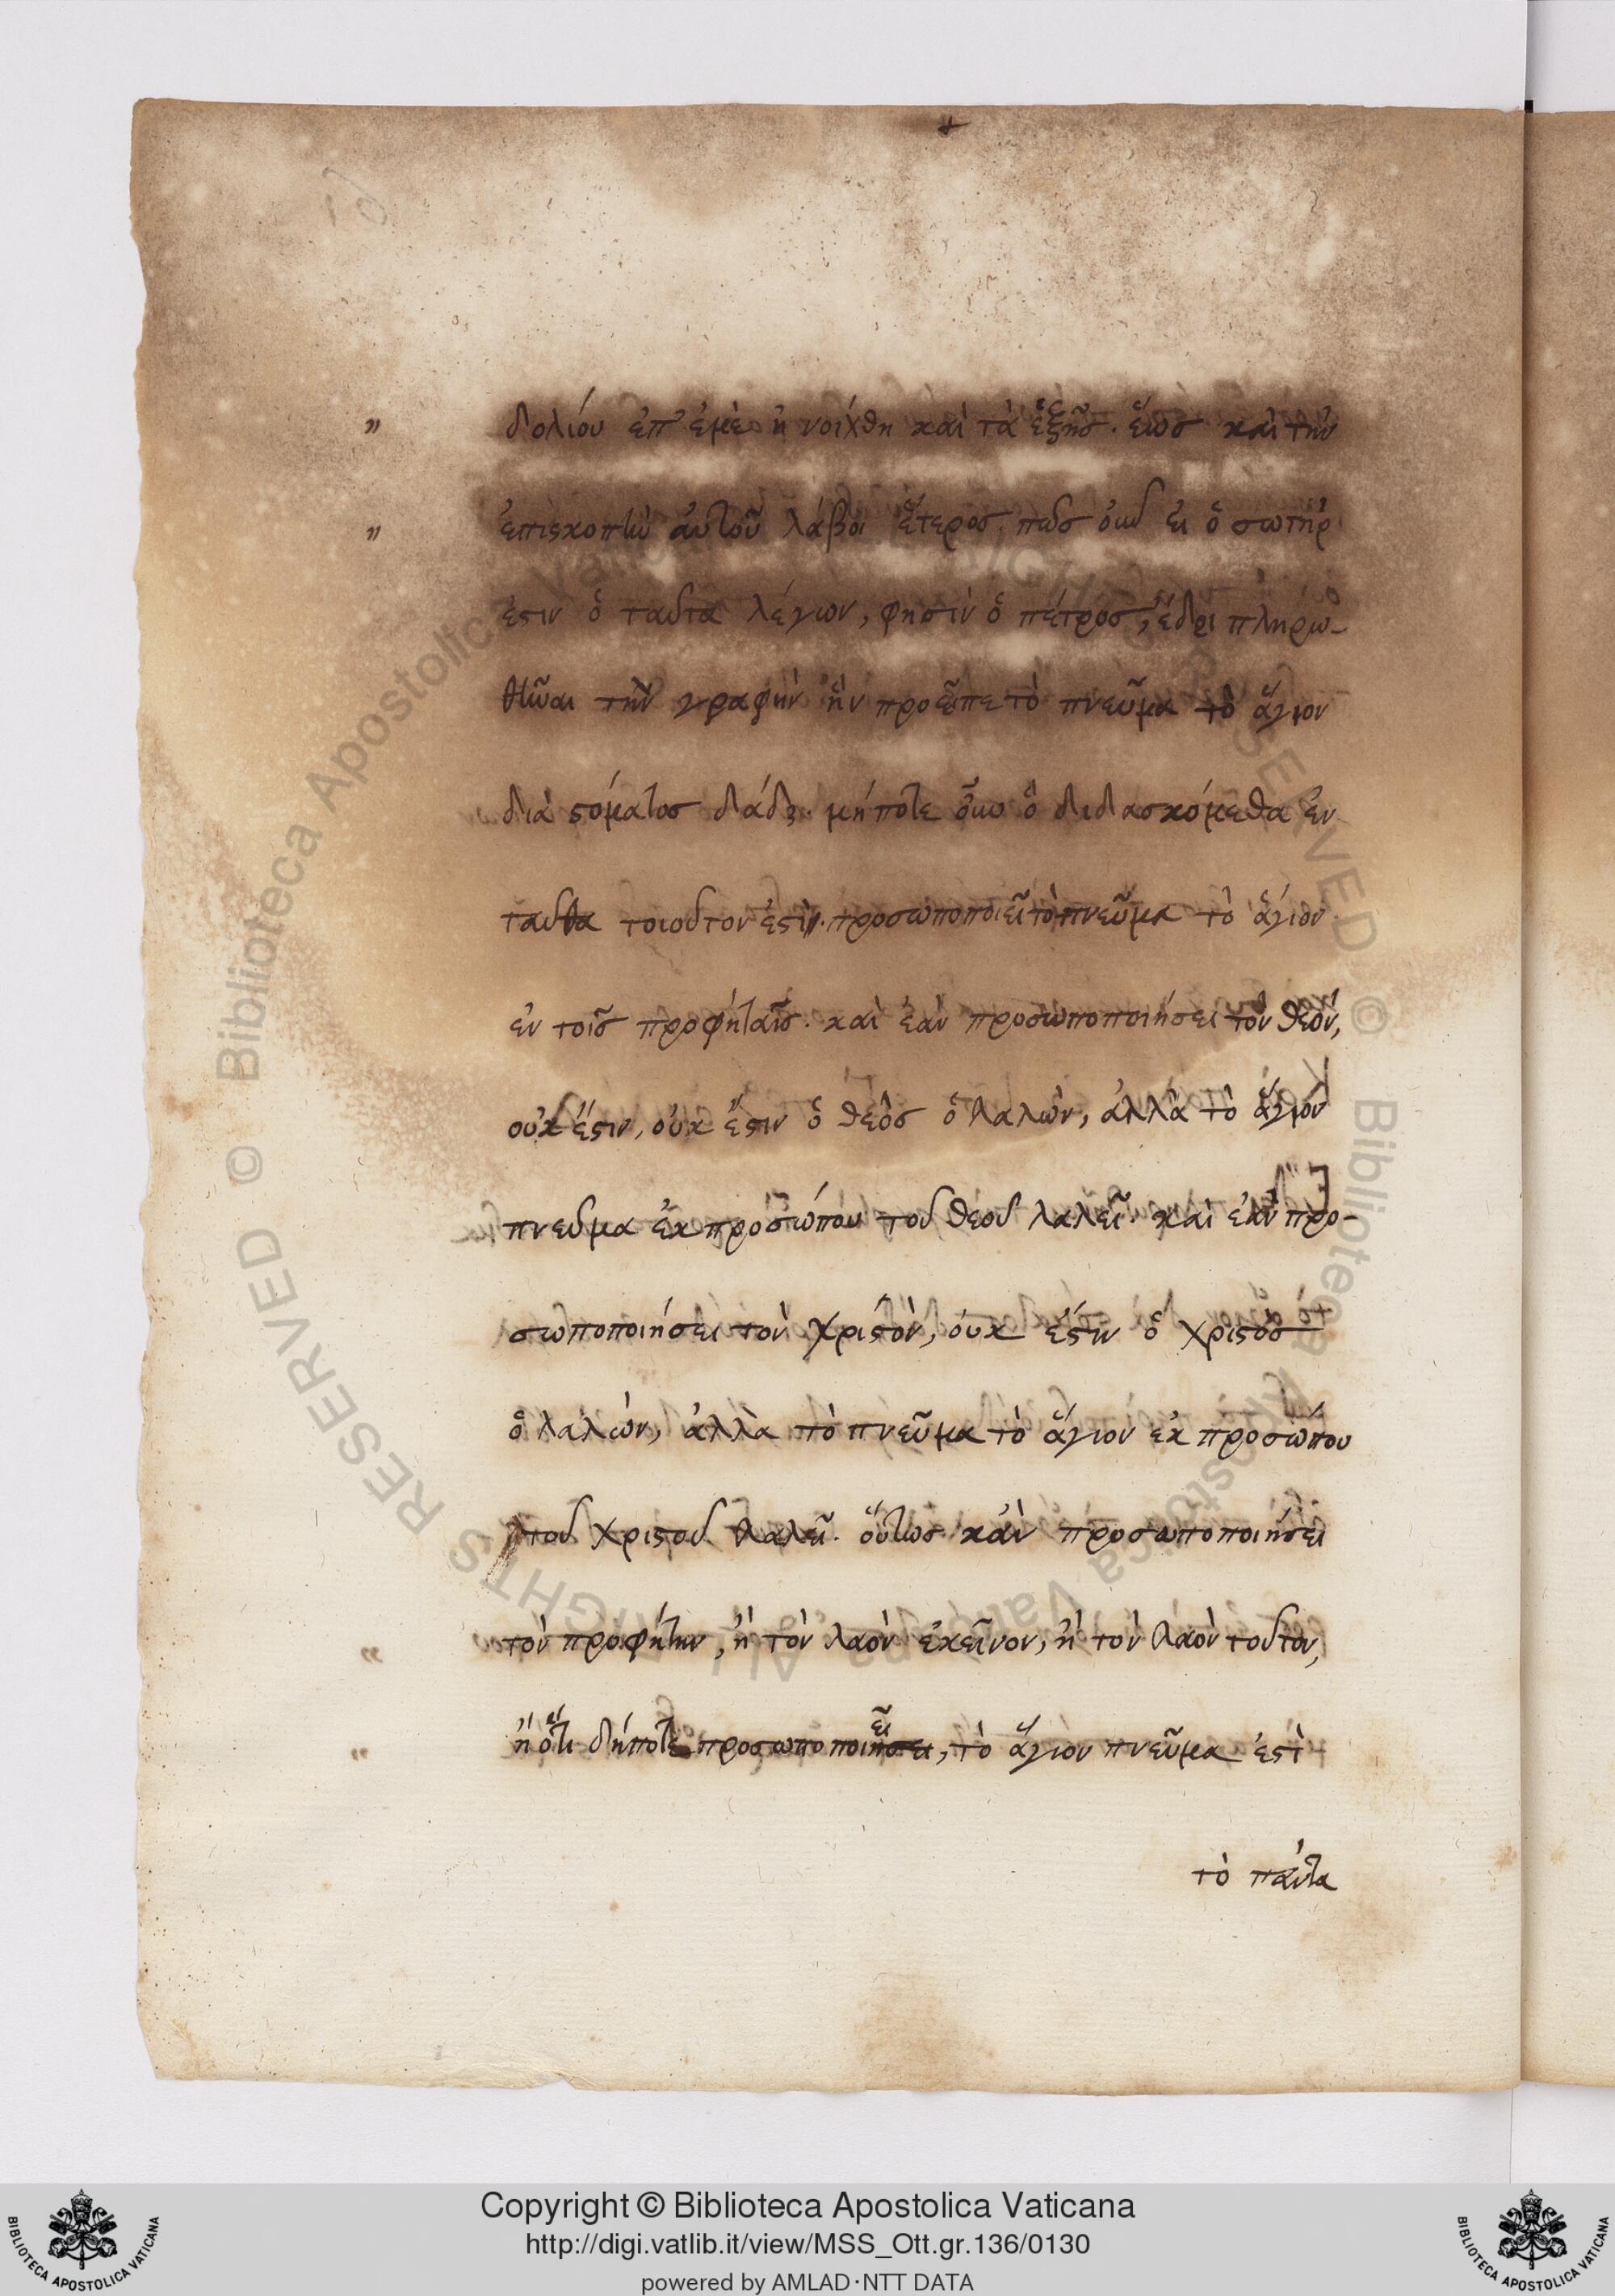 δολίου ἐπ' ἐμὲ ἠνοίχθη καὶ τὰ ἑξῆς. ἕως καὶ τὴν
ἐπισκοπὴν αὐτοῦ λάβοι ἕτερος. πῶς οὖν εἰ ὁ σωτήρ
ἐστιν ὁ ταῦτα λέγων, φησὶν ὁ πέτρος, ἔδει πληρω-
θῆναι τὴν γραφὴν ἣν προεῖπε τὸ πνεῦμα τὸ ἅγιον
διὰ στόματος δαδ. μήποτε οὖν ὃ διδασκόμεθα ἐν
ταῦθα τοιοῦτον ἐστὶν. προσωποποιεῖ τὸ πνεῦμα τὸ ἅγιον
ἐν τοῖς προφήταις. καὶ ἐὰν προσωποποιήσει τὸν θεὸν,
οὐκ ἔστιν, οὐκ ἔστιν ὁ θεὸς ὁ λαλῶν, ἀλλὰ τὸ ἅγιον
πνεῦμα ἐκ προσώπου τοῦ θεοῦ λαλεῖ. καὶ ἐὰν προ-
σωποποιήσει τὸν χριστὸν, οὐκ ἔστιν ὁ χριστὸς
ὁ λαλῶν, ἀλλὰ τὸ πνεῦμα τὸ ἅγιον ἐκ προσώπου
τοῦ χριστοῦ λαλεῖ. οὕτως κἀν προσωποποιήσει
τὸν προφήτην, ἢ τὸν λαὸν ἐκεῖνον, ἢ τὸν λαὸν τοῦτον,
ἢ ὅτι δήποτε προσωποποιεῖ, τὸ ἅγιον πνεῦμα ἐστὶ
τὸ πάντα
Copyright © Biblioteca Apostolica Vaticana
http://digi.vatlib.it/view/MSS_Ott.gr.136/0130
powered by AMLAD·NTT DATA
BIBLIOTECA APOSTOLICA VATICANA
BIBLIOTECA APOSTOLICA VATICANA
© Biblioteca Apostolica Vaticana ALL RIGHTS RESERVED